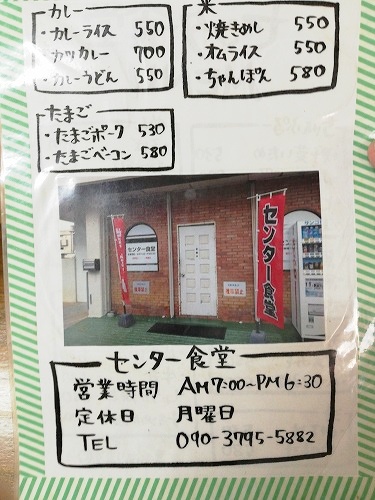 カレー
・カレーライス 550
・カツカレー 700
・カレーうどん 550
米
・焼きめし 550
・オムライス 550
・ちゃんぽん 580
たまご
・たまごポーク 530
・たまごベーコン 580
センター食堂
センター食堂
センター食堂
営業時間 AM7:00〜PM6:30
定休日 月曜日
TEL 090-3795-5882